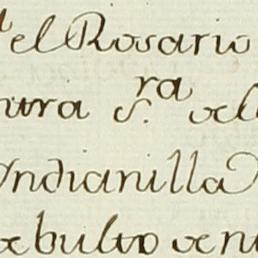 el Rosario
ntra S.ra de
Yndianilla
de bulto de n